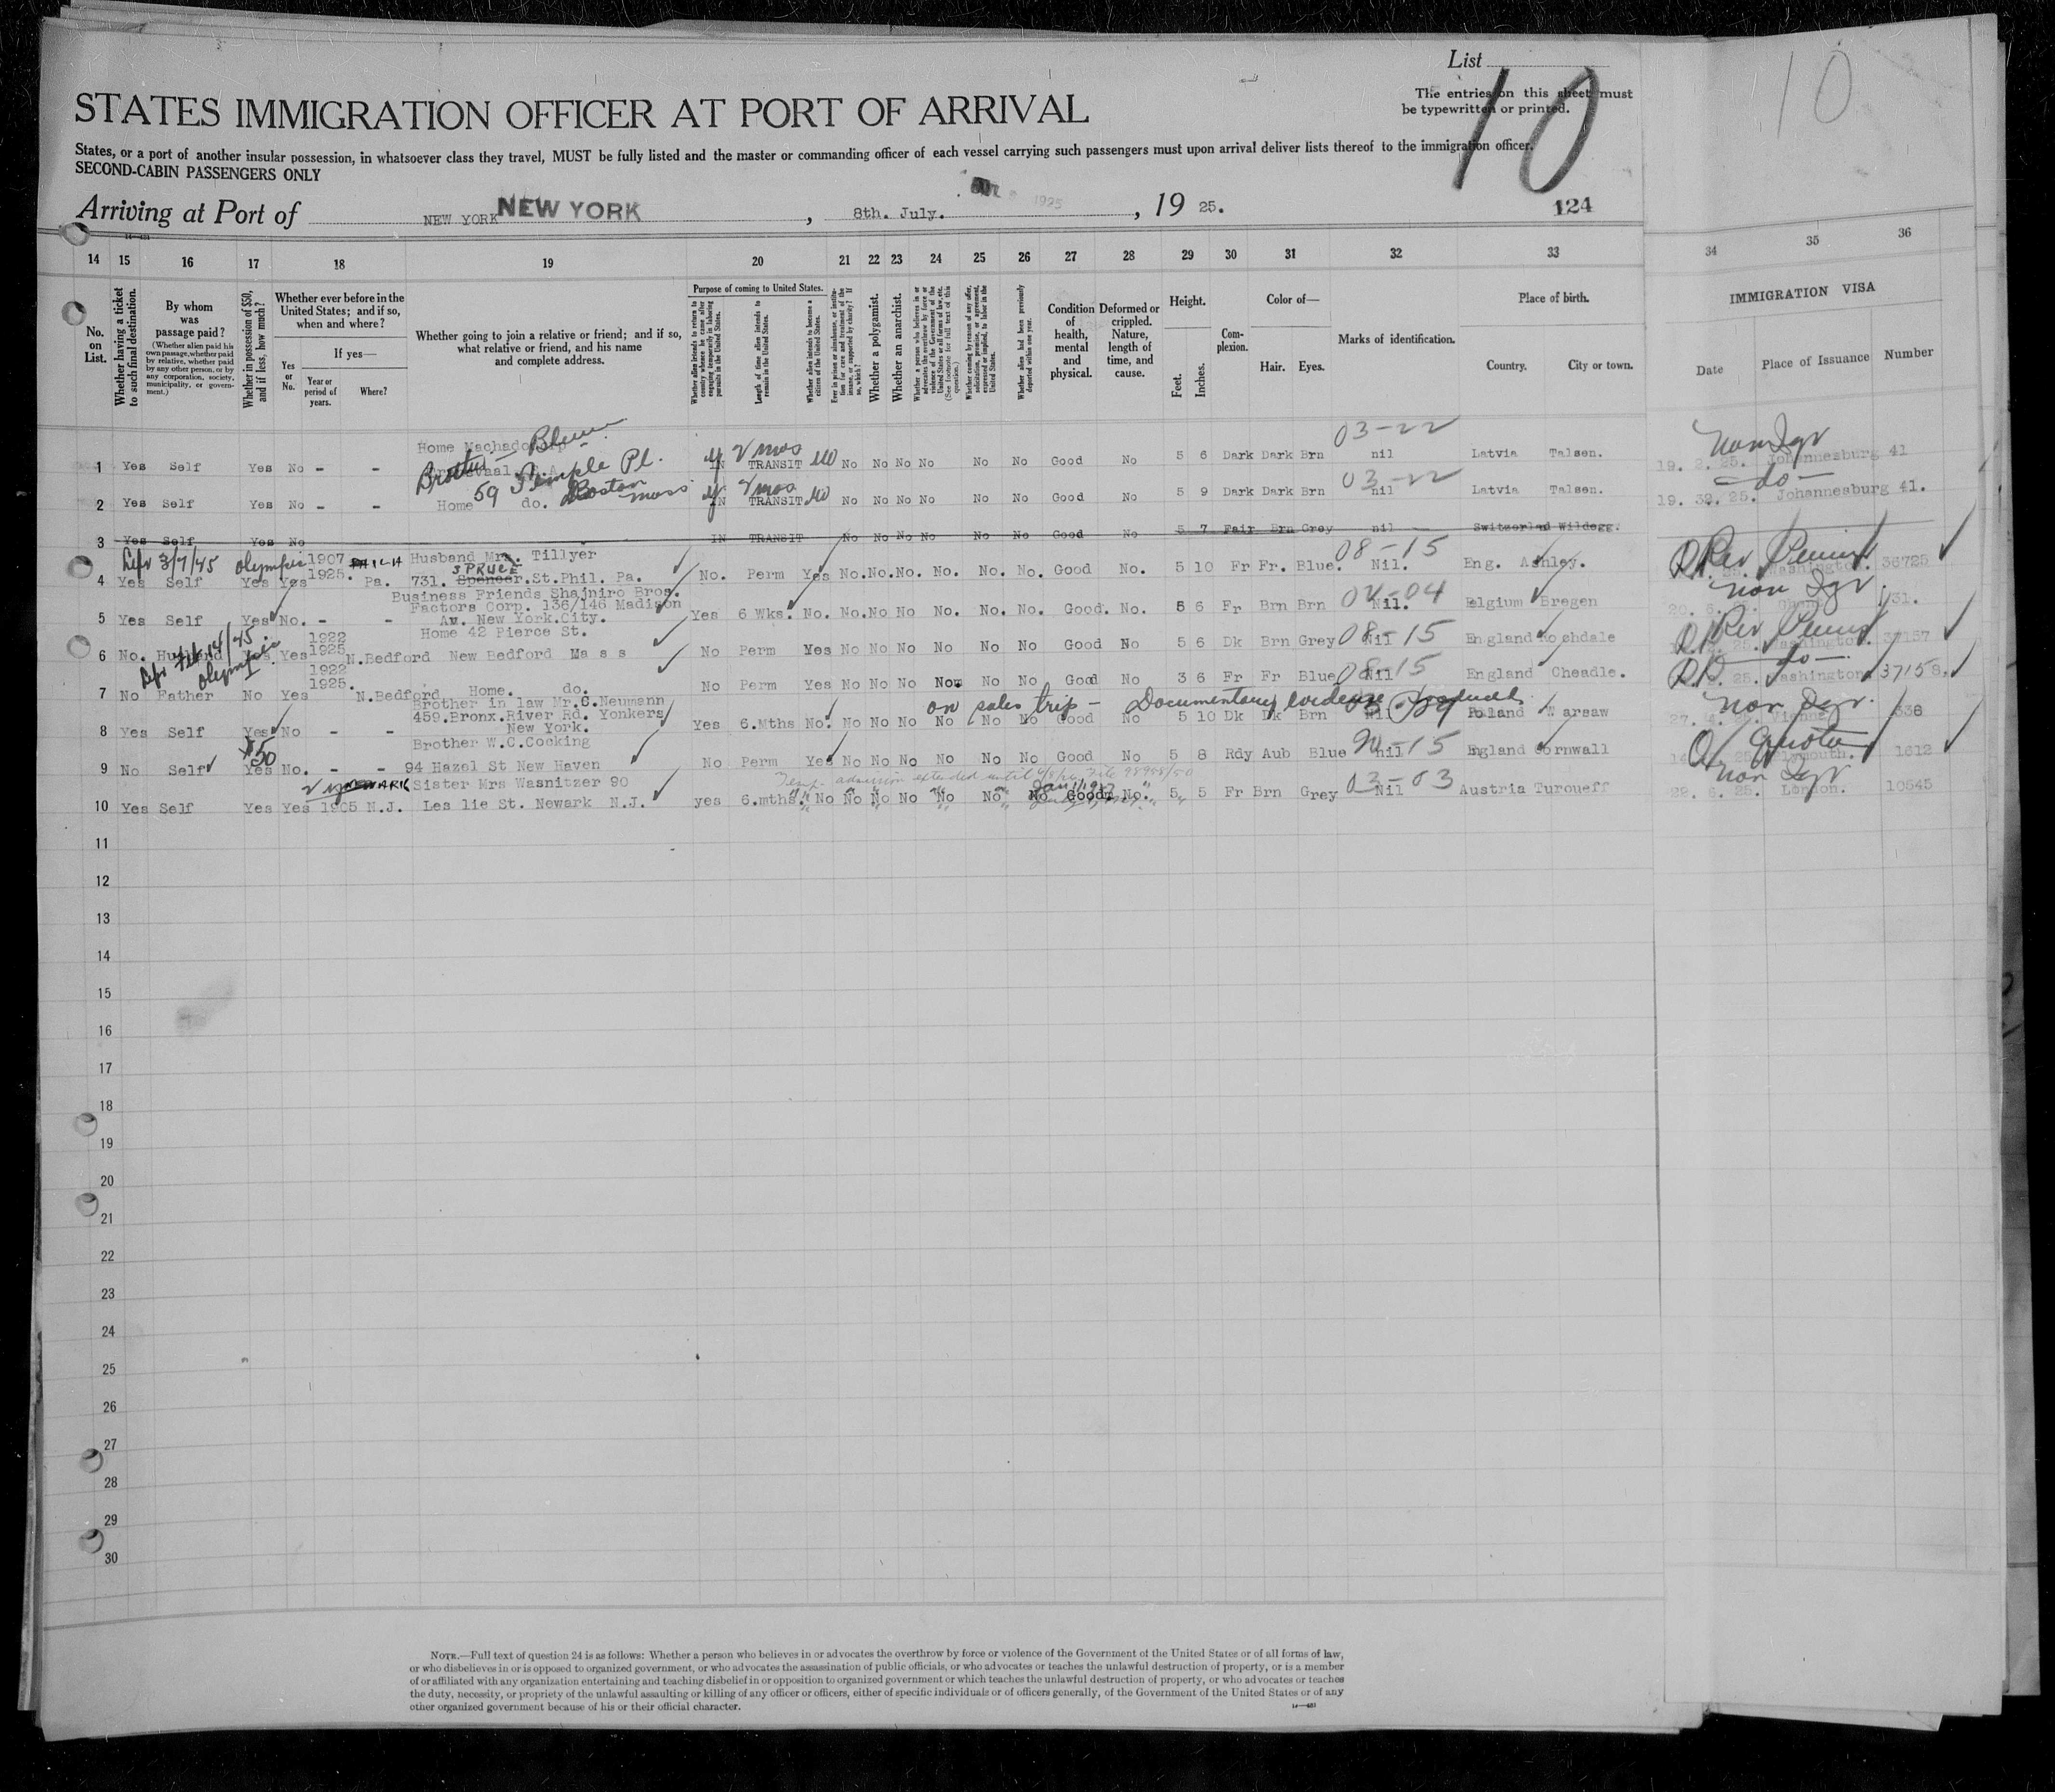 List
10
10
The entries on this sheet must
be typewritten or printed.
STATES IMMIGRATION OFFICER AT PORT OF ARRIVAL
States, or a port of another insular possession, in whatsoever class they travel, MUST be fully listed and the master or commanding officer of each vessel carrying such passengers must upon arrival deliver lists thereof to the immigration officer.
SECOND-CABIN PASSENGERS ONLY
Arriving at Port of NEW YORK NEW YORK, 8th. July. 1925, 19 25.
124
14 15 16 17 18 19 20 21 22 23 24 25 26 27 28 29 30 31 32 33 34 35 36
No. on List.
Whether having a ticket to such final destination.
By whom was passage paid?
(Whether alien paid his own passage, whether paid by relative, whether paid by any other person, or by any corporation, society, municipality, or government.)
Whether in possession of $50, and if less, how much?
Whether ever before in the United States; and if so, when and where?
Yes or No.
If yes—
Year or period of years.
Where?
Whether going to join a relative or friend; and if so, what relative or friend, and his name and complete address.
Purpose of coming to United States.
Whether alien intends to return to country whence he came after engaging temporarily in laboring pursuits in the United States.
Length of time alien intends to remain in the United States.
Whether alien intends to become a citizen of the United States.
Ever in prison or almshouse, or institution for care and treatment of the insane, or supported by charity? If so, which?
Whether a polygamist.
Whether an anarchist.
Whether a person who believes in or advocates the overthrow by force or violence of the Government of the United States or all forms of law, etc. (See footnote for full text of this question.)
Whether coming by reason of any offer, solicitation, promise, or agreement, expressed or implied, to labor in the United States.
Whether alien had been previously deported within one year.
Condition of health, mental and physical.
Deformed or crippled. Nature, length of time, and cause.
Height.
Feet. Inches.
Complexion.
Color of—
Hair. Eyes.
Marks of identification.
Place of birth.
Country. City or town.
IMMIGRATION VISA
Date Place of Issuance Number
Home Machado Blum 03-22 Non Igr
1 Yes Self Yes No - - Brother 2 mos IN TRANSIT No No No No No No Good No 5 6 Dark Dark Brn nil Latvia Talsen. Johannesburg 41
59 Temple Pl. Boston Mass 2 mos 03-22 do
2 Yes Self Yes No - - Home do. IN TRANSIT No No No No No No Good No 5 9 Dark Dark Brn nil Latvia Talsen. Johannesburg 41.
3 Yes Self Yes No IN TRANSIT No No No No No No Good No 5 7 Fair Brn Grey nil Switzerland Wildegg.
3/7/45 Olympic 1907 PHILA Husband Mr. Tillyer 08-15
4 Yes Self Yes Yes 1925. Pa. 731. Spencer SPRUCE.St.Phil. Pa. No. Perm Yes No.No.No. No. No. No. Good No. 5 10 Fr Fr. Blue. Nil. Eng. Ashley. Washington. 36725
Business Friends Shajniro Bros. non Igr
Factors Corp. 136/146 Madison 04-04
5 Yes Self Yes No. - - Av. New York.City. Yes 6 Wks. No. No.No No No. No. No. Good. No. 5 6 Fr Brn Brn Nil. Belgium Bregen
1922 Home 42 Pierce St. 08-15
6 No. Husband Yes Yes 1925 N.Bedford New Bedford Mass No Perm Yes No No No No No No Good No 5 6 Dk Brn Grey Nil England Rochdale Washington. 37157
Olympic
1922 08-15 do
7 No Father No Yes 1925. N.Bedford Home. do. No Perm Yes No No No No No No Good No 3 6 Fr Fr Blue Nil England Cheadle. Washington 37158.
Brother in law Mr.S.Neumann on sales trip - Documentary evidence produced non Igr.
459.Bronx.River Rd. Yonkers
8 Yes Self Yes No - - New York. Yes 6.Mths No. No No No No No No Good No 5 10 Dk Dk Brn Nil Poland Warsaw Vienna 338
$50 Brother W.C.Cocking Quota
9 No Self Yes No. - - 94 Hazel St New Haven No Perm Yes No No No No No No Good No 5 8 Rdy Aub Blue nil England Cornwall Plymouth. 1612
NEWARK Sister Mrs Wasnitzer 90 Temp. admission extended until 03-03 Non Igr
10 Yes Self Yes Yes 1905 N.J. Leslie St. Newark N.J. yes 6.mths. No No No No No No No Good No. 5 5 Fr Brn Grey Nil Austria Turoueff 22. 6. 25. London. 10545
11
12
13
14
15
16
17
18
19
20
21
22
23
24
25
26
27
28
29
30
NOTE.—Full text of question 24 is as follows: Whether a person who believes in or advocates the overthrow by force or violence of the Government of the United States or of all forms of law,
or who disbelieves in or is opposed to organized government, or who advocates the assassination of public officials, or who advocates or teaches the unlawful destruction of property, or is a member
of or affiliated with any organization entertaining and teaching disbelief in or opposition to organized government or which teaches the unlawful destruction of property, or who advocates or teaches
the duty, necessity, or propriety of the unlawful assaulting or killing of any officer or officers, either of specific individuals or of officers generally, of the Government of the United States or of any
other organized government because of his or their official character.